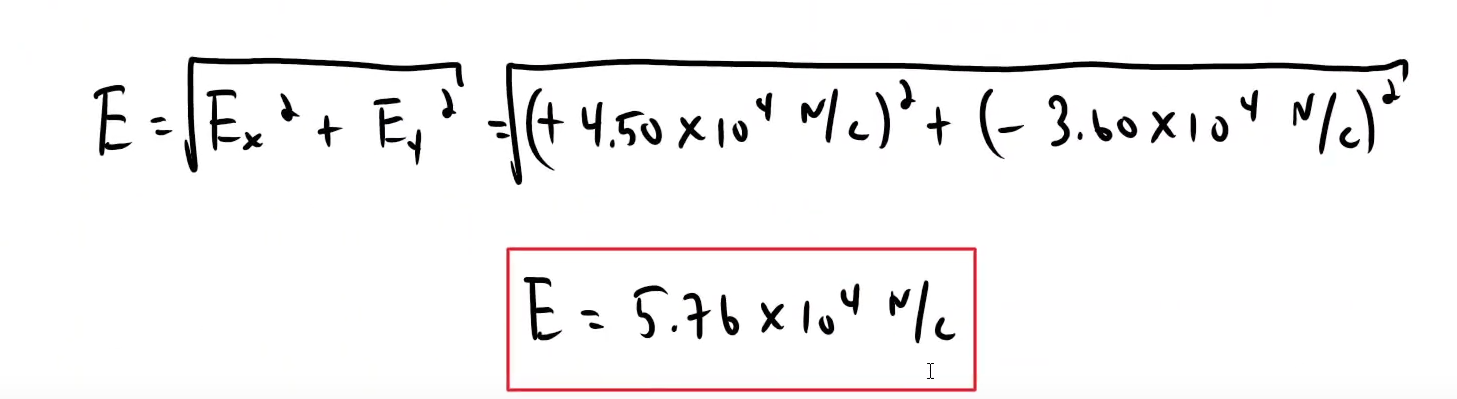 E = √(Eₓ² + Eᵧ²) = √((+ 4.50 × 10⁴ N/C)² + (- 3.60 × 10⁴ N/C)²)
E = 5.76 × 10⁴ N/C